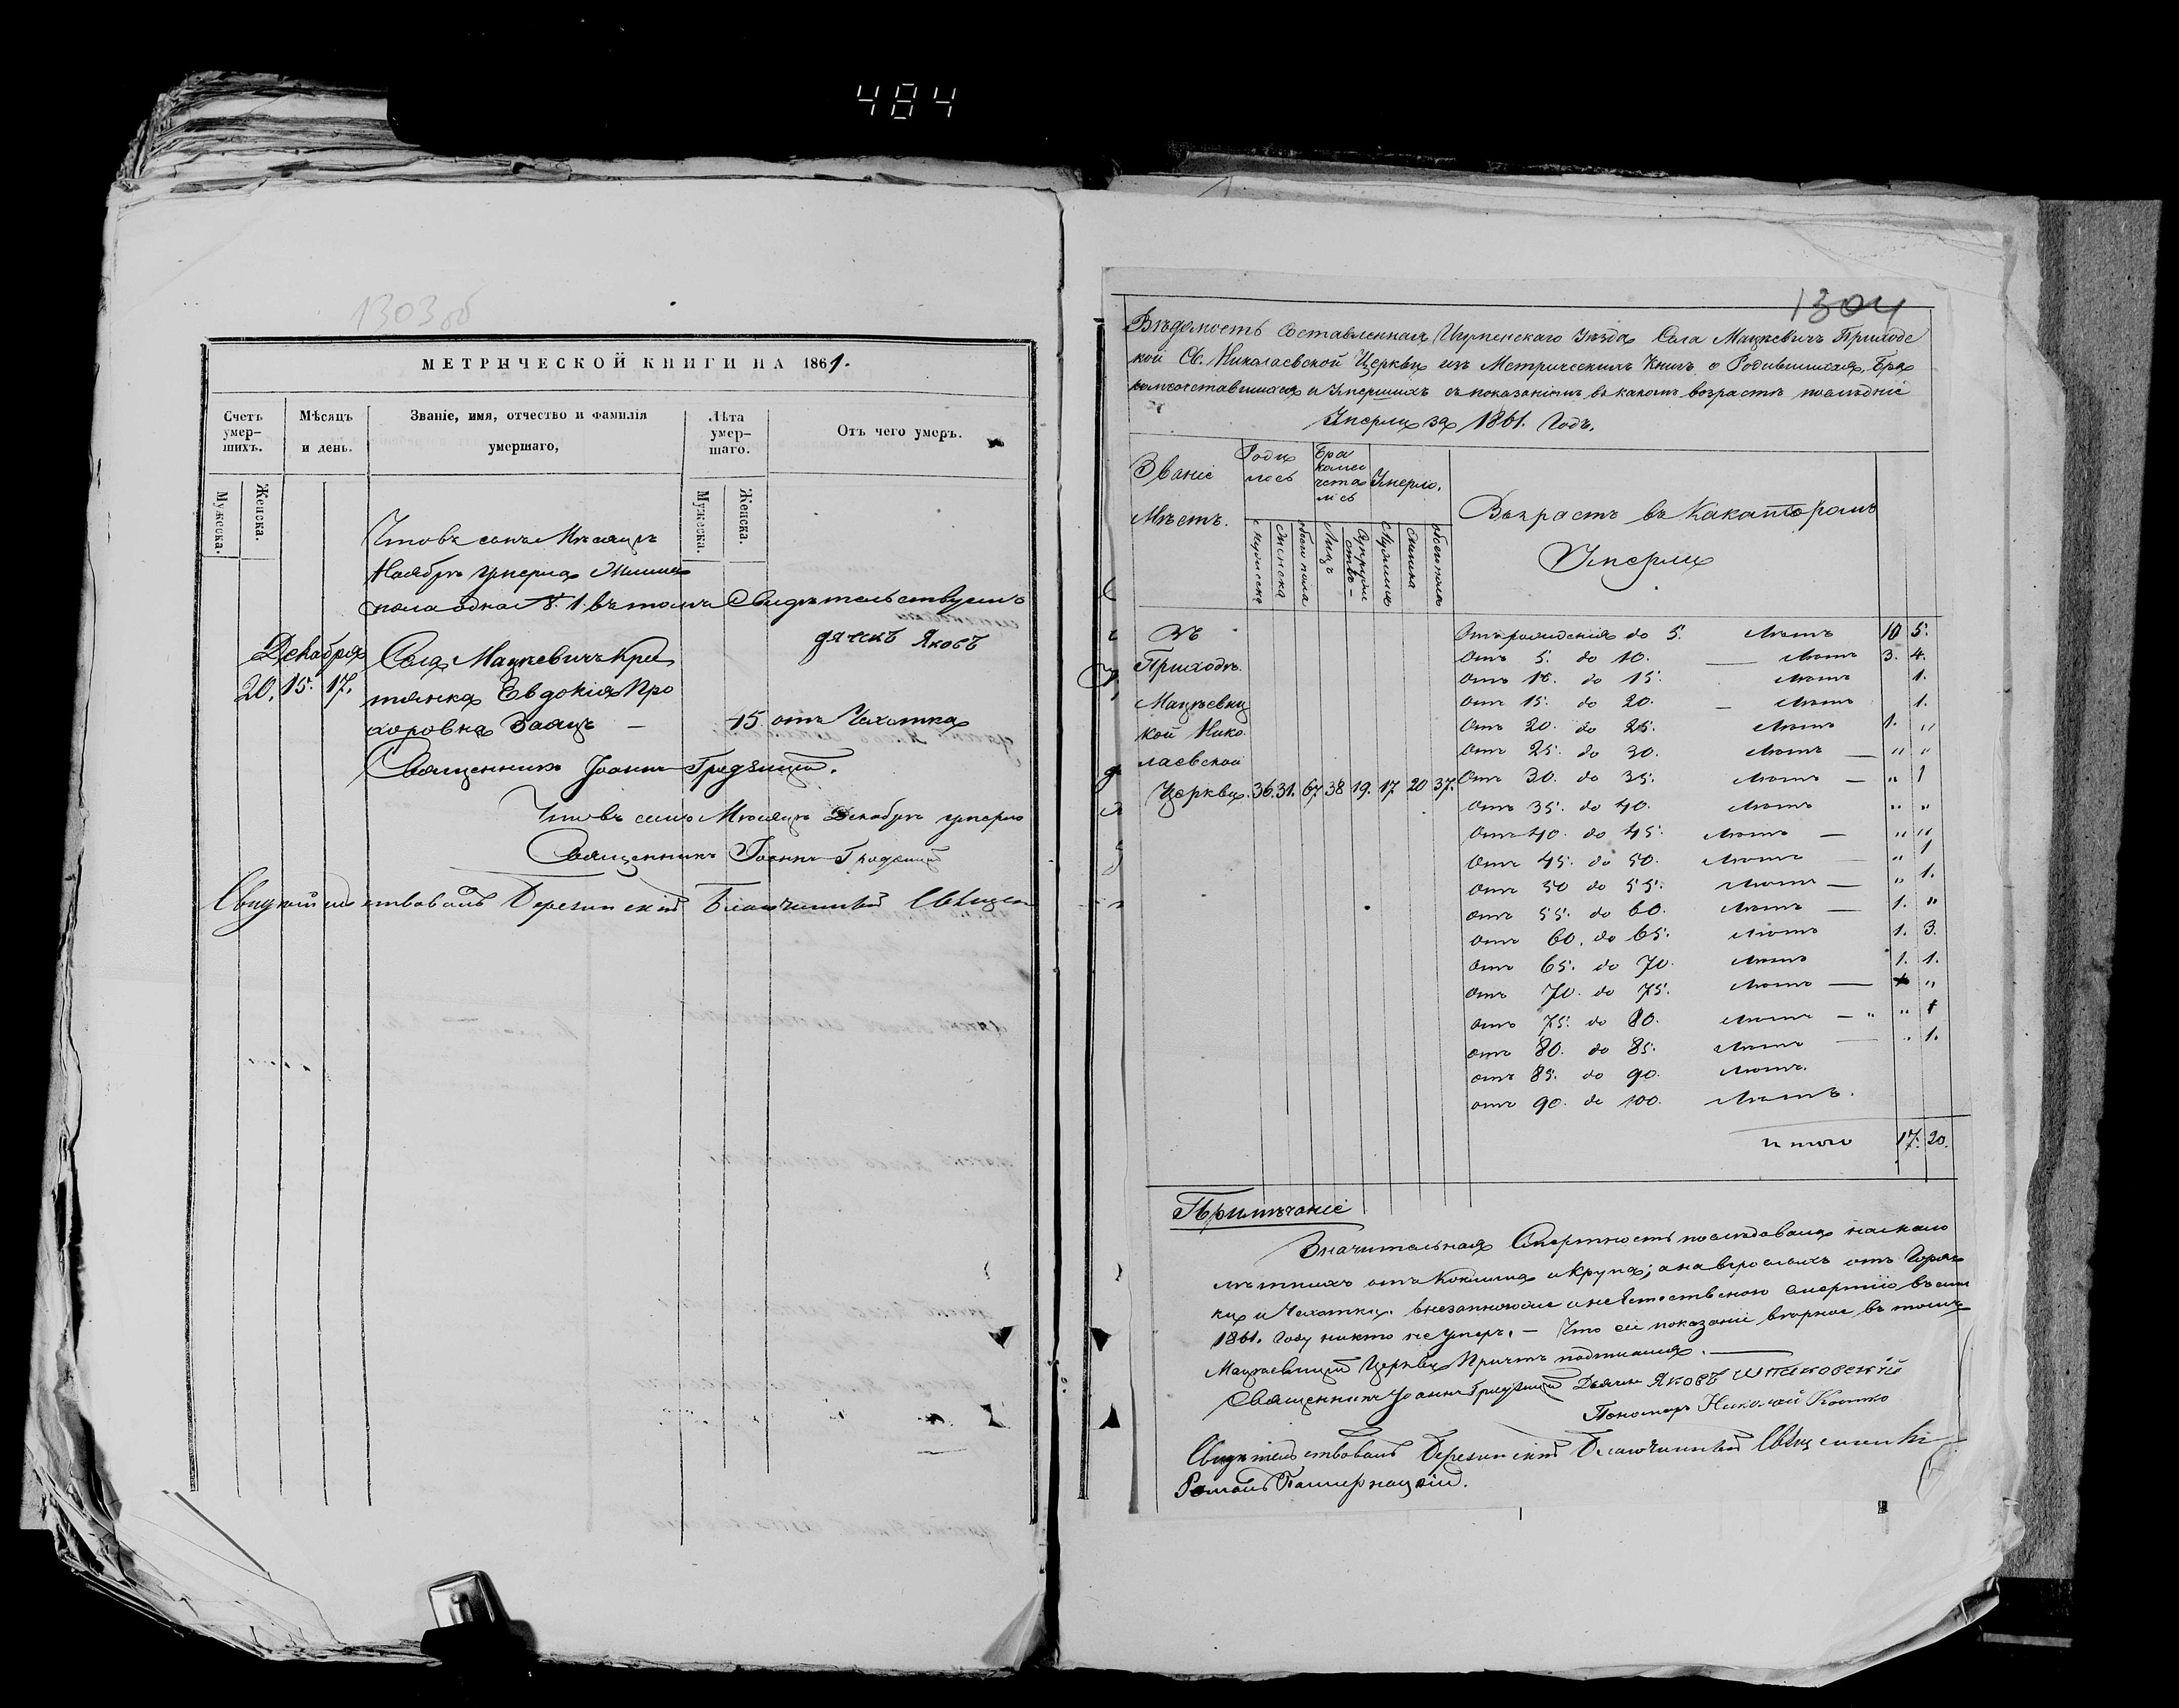 484
1303об
МЕТРИЧЕСКОЙ КНИГИ НА 1861.
Счетъ умер-шихъ.
Мѣсяцъ и день.
Званіе, имя, отчество и фамилія умершаго,
Лѣта умер-шаго.
Отъ чего умеръ.
Мужеска.
Женска.
Мужеска.
Женска.
Что въ семъ Мѣсяцѣ
Ноябрѣ умерла Женска
пола одна №. 1. въ томъ Свидѣтельствуемъ
дячекъ Яковъ
Декабря Села Мацкевичъ Кре
20. 15. 17. тянка Евдокія Про
хоровна Заяцъ — 45 отъ Чахотки
Священникъ Іоаннъ Гридзицкій.
Что въ семъ Мѣсяцѣ Декабрѣ умерло
Священникъ Іоаннъ
Свидѣтельствовалъ Березинскій Благочинный Священ
1304
Вѣдомость Составленная Игуменскаго Уѣзда Села Мацкевичъ Приходс
кой Св. Николаевской Церкви изъ Метрическихъ Книгъ о Родившихся, Бра
комсоставшихся и Умершихъ съ показаніемъ въ какомъ возрастѣ послѣдніе
Умерли за 1861. Годъ.
Званіе Мѣстъ.
Роди лось
Бра комсо чета лось
Умерло.
Возрастъ въ Какомъ
Умерли
мужеска
женска
обоего пола
Лицъ
Супруже ство
женска
обоего пола
Въ
Приходѣ
Мацкевиц
кой Нико
лаевской
Церкви. 36. 31. 67 38 19. 17 20 37.
Отъ рожденія до 5. лѣтъ 10 5.
Отъ 5. до 10. — лѣтъ 3. 4.
Отъ 10. до 15. лѣтъ 1.
Отъ 15. до 20. — лѣтъ 1.
Отъ 20. до 25. лѣтъ 1. „
Отъ 25. до 30. лѣтъ — „ „
Отъ 30. до 35. лѣтъ — „ 1
Отъ 35. до 40. лѣтъ „ „
Отъ 40. до 45. лѣтъ — „ „
Отъ 45. до 50. лѣтъ — „ 1
Отъ 50 до 55. лѣтъ — „ 1.
отъ 55. до 60. лѣтъ — 1. „
отъ 60. до 65. лѣтъ 1. 3.
отъ 65. до 70. лѣтъ 1. 1.
отъ 70. до 75. лѣтъ — „
отъ 75. до 80. лѣтъ — „ „ 1
отъ 80. до 85. лѣтъ — . 1.
отъ 85. до 90. лѣтъ.
отъ 90. до 100. лѣтъ.
итого 17. 20.
Примѣчаніе
Значительная Смертность послѣдовала на мало
лѣтнихъ отъ Коклюша и крупа; а на взрослыхъ отъ Горяч
ки и Чахотки. внезапною и неестественною смертію въ семъ
1861. Году никто не умеръ. — Что сіе показаніе вѣрное въ томъ
Мацкевицкой Церкви Причтъ подписался. —
Священникъ Іоаннъ Гридзицкій Дьячекъ Яковъ Шпаковскій
Пономарь Николай
Свидѣтельствовалъ Березинскій Благочинный Священникъ
Романъ Пастернацкій.